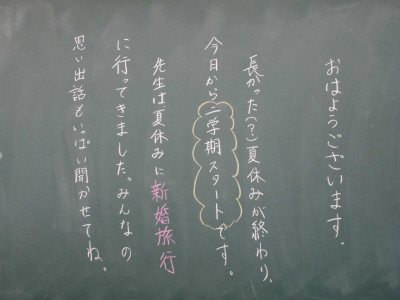 おはようございます。
長かった(?)夏休みが終わり、
今日から二学期スタートです。
先生は夏休みに新婚旅行
に行ってきました。みんなの
思い出話もいっぱい聞かせてね。